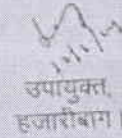 उपायुक्त,
हजारीबाग।